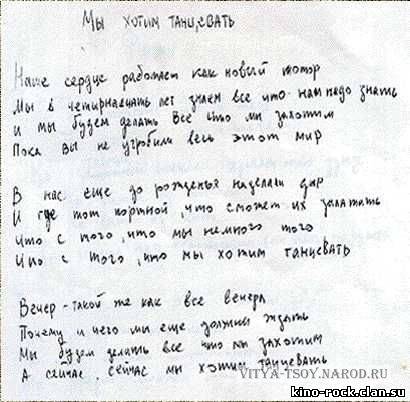 Мы хотим танцевать
Наше сердце работает как новый мотор
Мы в четырнадцать лет знаем все что нам надо знать
И мы будем делать все что мы захотим
Пока вы не угробили весь этот мир
В нас еще до рожденья наделали дыр
И где тот портной, что сможет их залатать
Что с того, что мы немного того
Что с того, что мы хотим танцевать
Вечер - такой же как все вечера
Почему и чего мы еще должны ждать
Мы будем делать все что мы захотим
А сейчас, сейчас мы хотим танцевать
VITYA-TSOY.NAROD.RU
kino-rock.clan.su